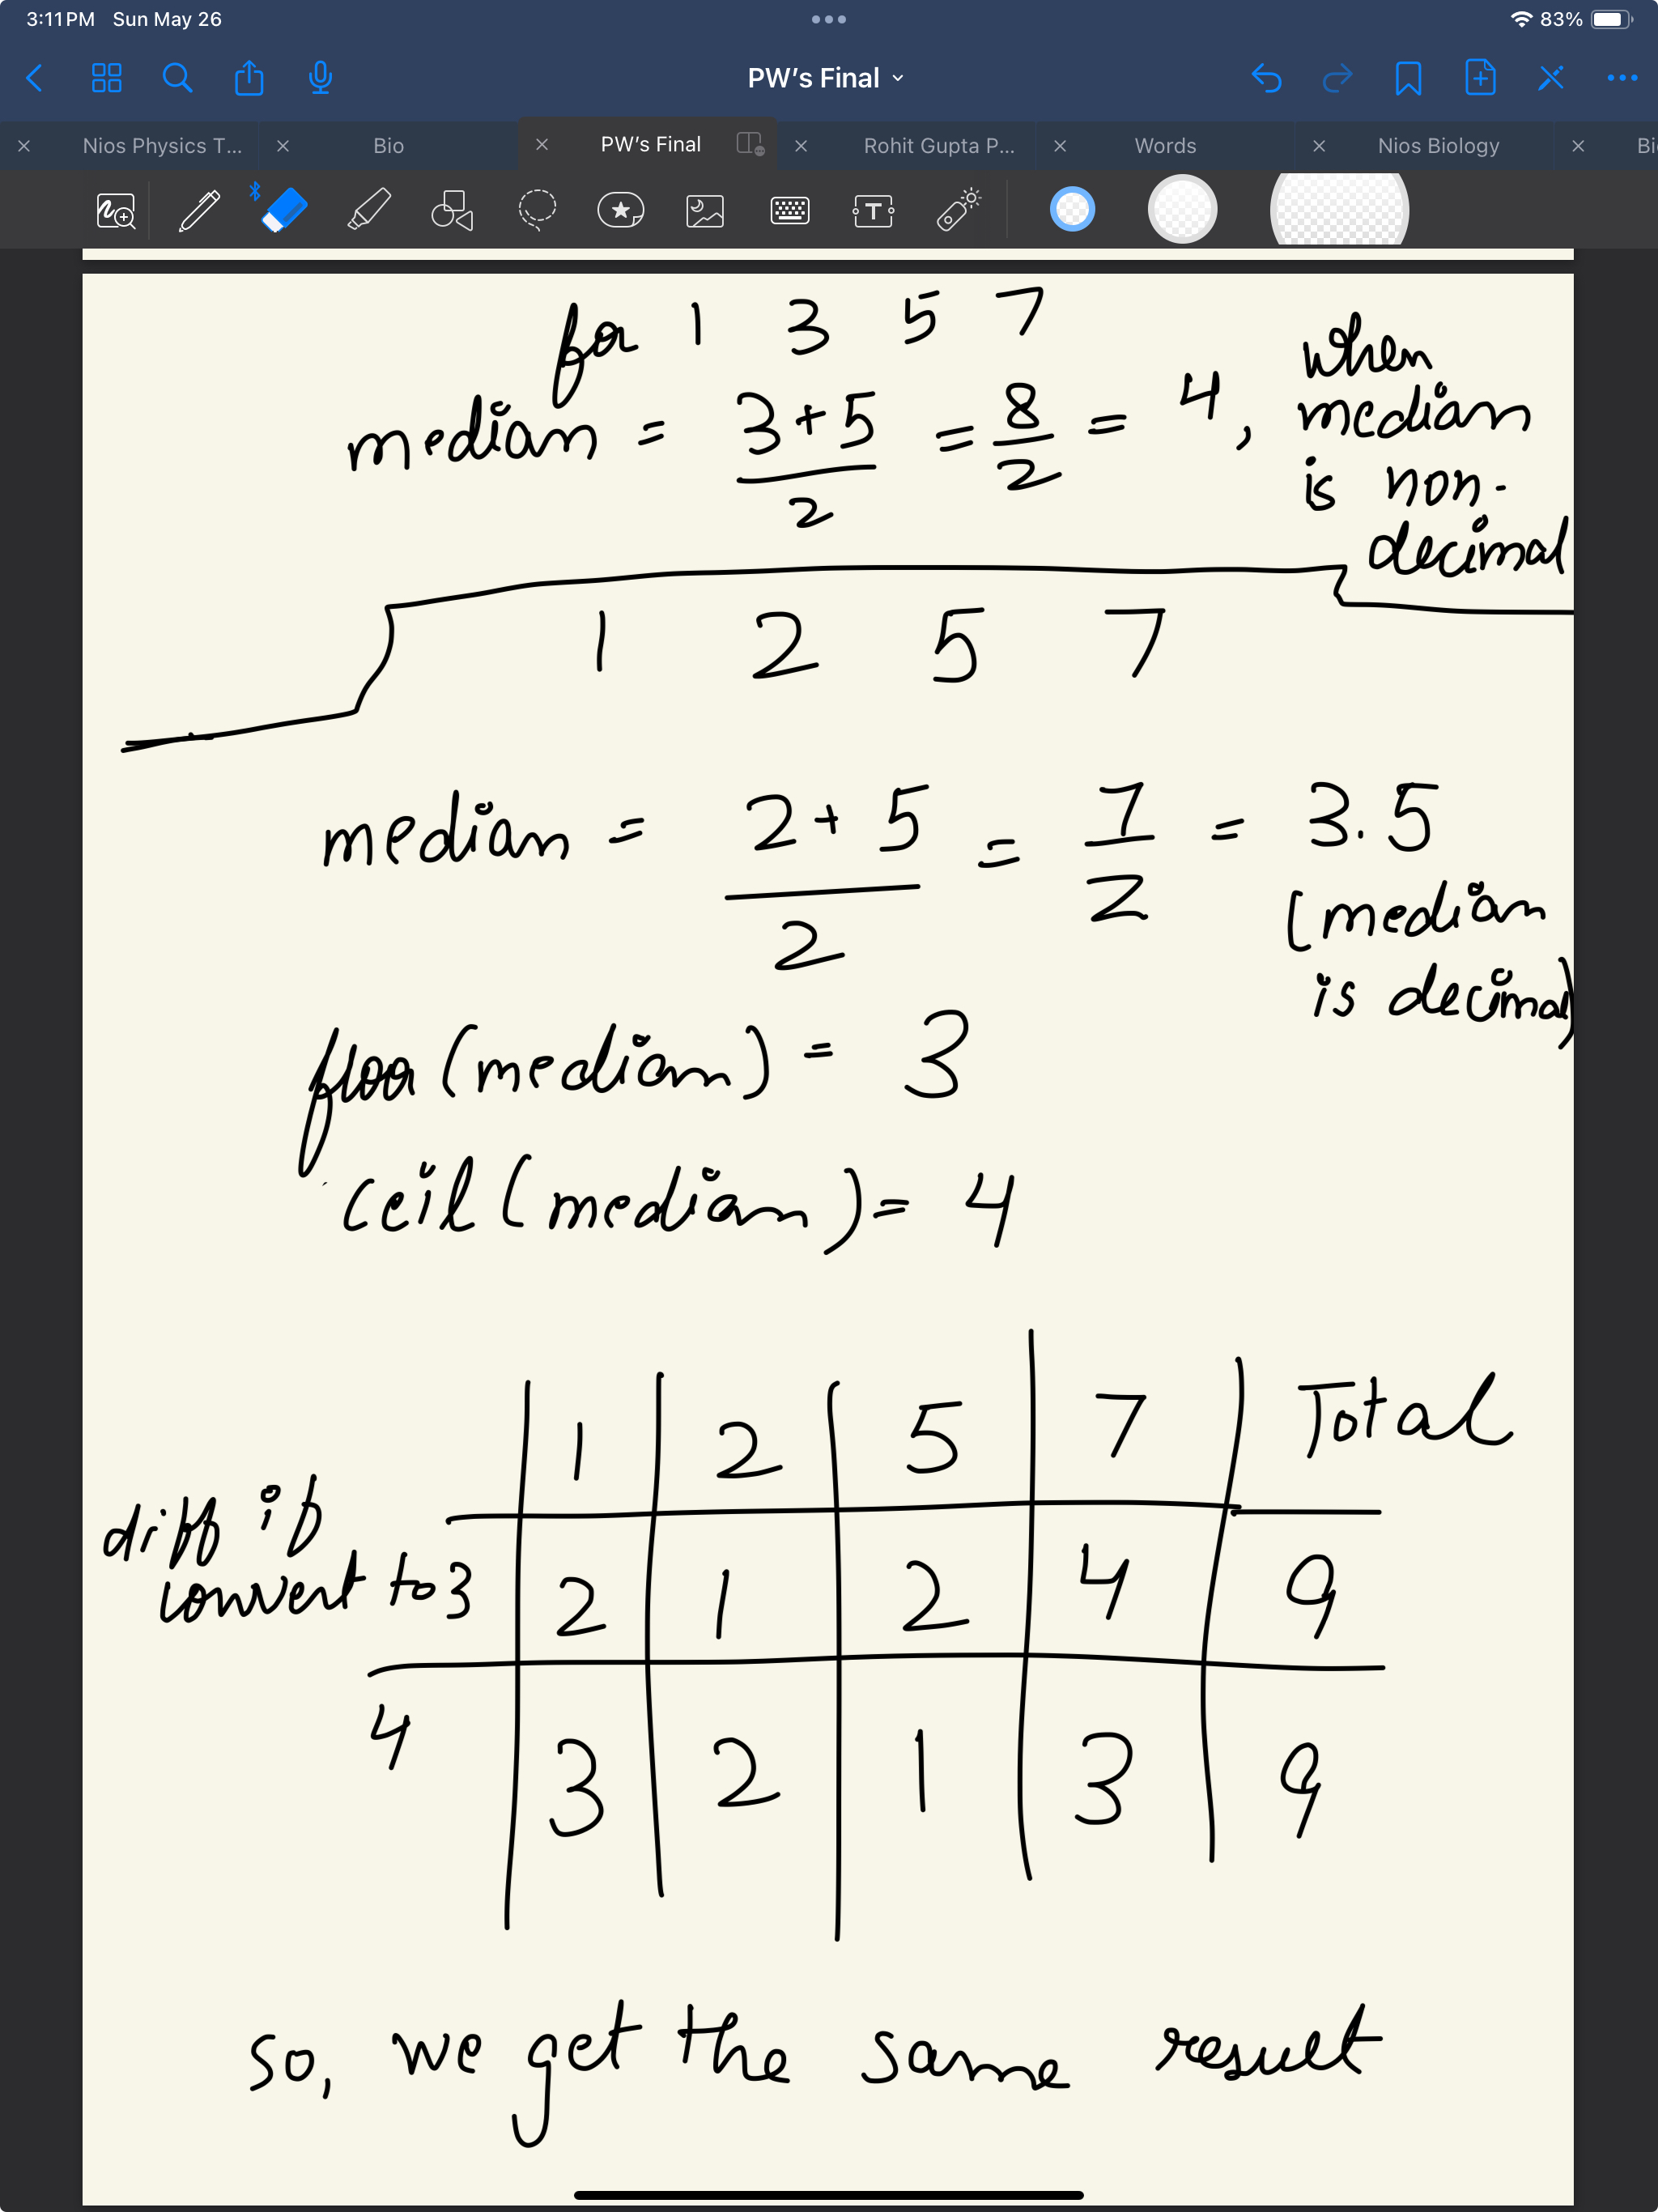 3:11 PM Sun May 26
83%
PW's Final
Nios Physics T...
Bio
PW's Final
Rohit Gupta P...
Words
Nios Biology
Bi
for 1 3 5 7
median = 3+5/2 = 8/2 = 4, when median is non-decimal
1 2 5 7
median = 2+5/2 = 7/2 = 3.5
(median is decimal)
floor (median) = 3
ceil (median) = 4
1 2 5 7 Total
diff if
convert to 3 2 1 2 4 9
4 3 2 1 3 9
so, we get the same result